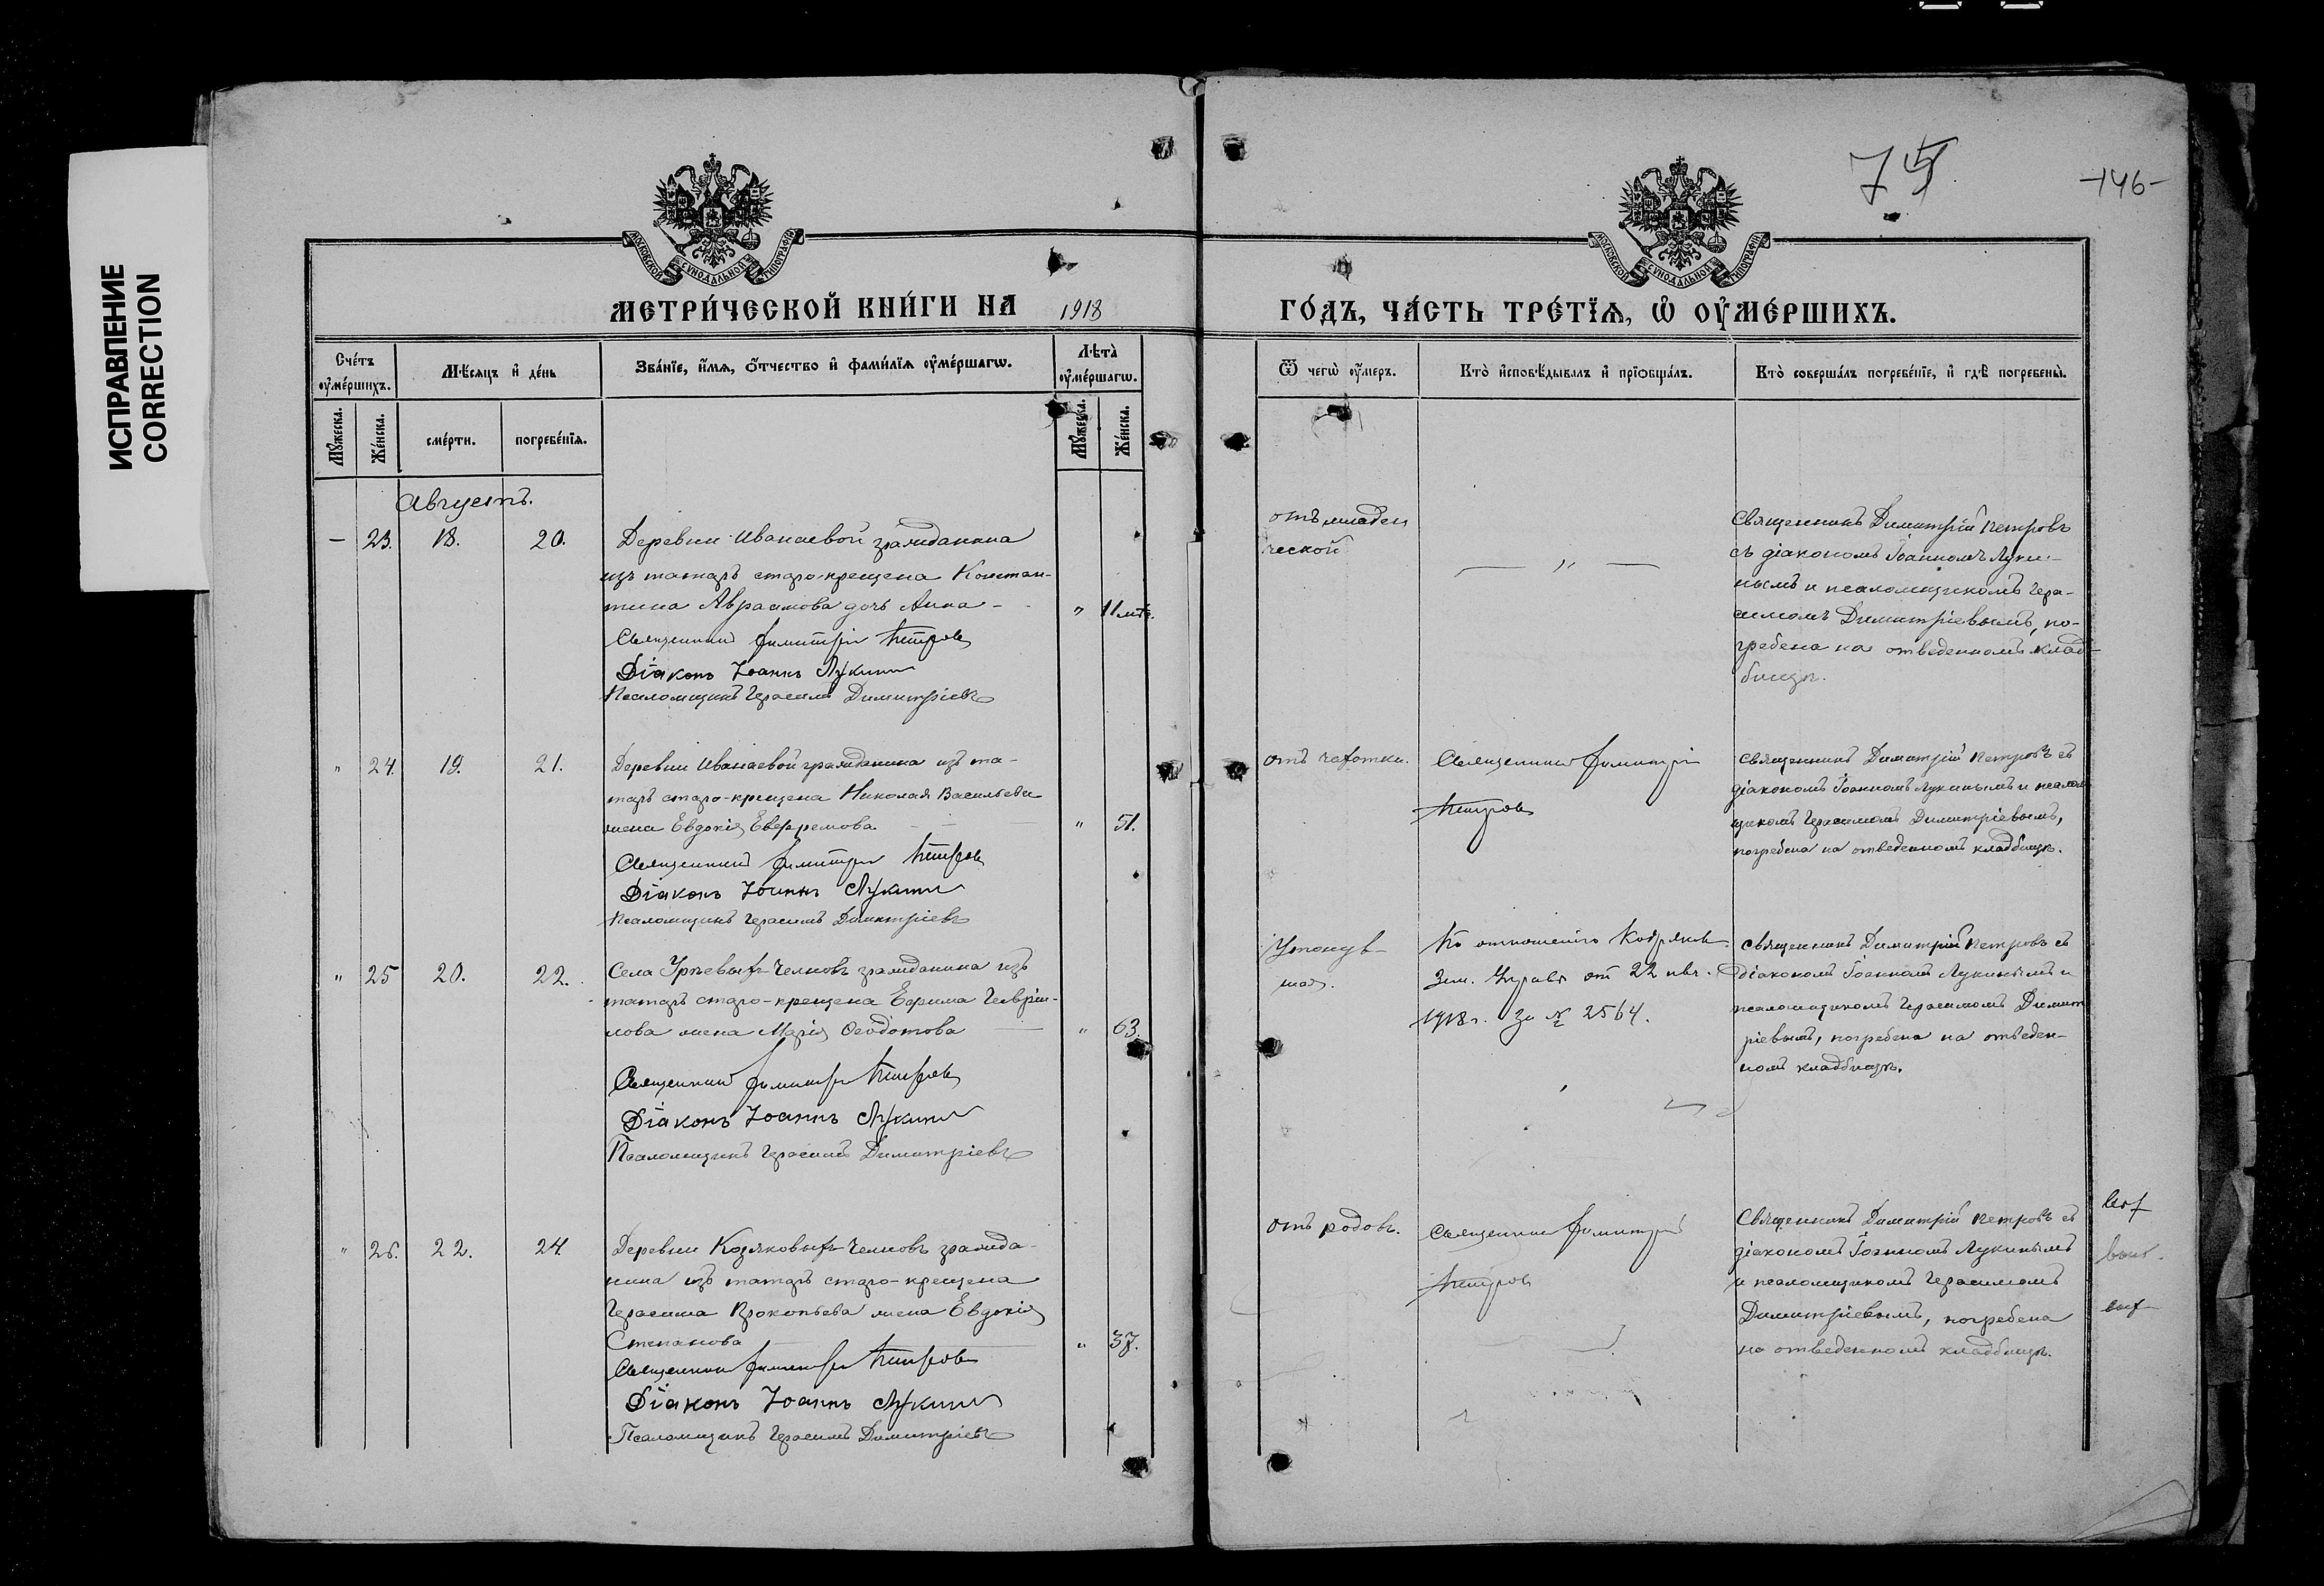 ИСПРАВЛЕНИЕ
CORRECTION
75
-146-
МОСКОВСКОЙ СУНОДАЛЬНОЙ ТИПОГРАФІИ
МОСКОВСКОЙ СУНОДАЛЬНОЙ ТИПОГРАФІИ
МЕТРИ́ЧЕСКОЙ КНИ́ГИ НА 1918 ГО́ДЪ, ЧА́СТЬ ТРЕ́ТЇѦ, Ѡ҆ ОУ҆МЕ́РШИХЪ.
Сче́тъ оу҆ме́ршихъ.
Мѣ́сѧцъ и҆ де́нь
Зва́нїе, и҆́мѧ, ѻ҆́тчество и҆ фами́лїѧ оу҆ме́ршагѡ.
Лѣта̀ оу҆ме́ршагѡ.
Ѿ чегѡ̀ оу҆́меръ.
Кто̀ и҆сповѣ́дывалъ и҆ прїѡбща́лъ.
Кто̀ соверша́лъ погребе́нїе, и҆ гдѣ̀ погребены̀.
Мꙋ́жеска.
Же́нска.
сме́рти.
погребе́нїѧ.
Мꙋ́жеска.
Же́нска.
Августъ.
— 23. 18. 20.
Деревни Иванаевой гражданина
изъ татаръ старо-крещена Констан-
тина Авраамова дочь Анна -
" 11 мѣс.
Священникъ Димитрій Петровъ
Діаконъ Іоаннъ Лукинъ
Псаломщикъ Герасимъ Димитріевъ
отъ младен
ческой
— " —
Священникъ Димитрій Петровъ
съ діакономъ Іоанномъ Луки-
нымъ и псаломщикомъ Гера-
симомъ Димитріевымъ, по-
гребена на отведенномъ клад-
бищѣ.
" 24. 19. 21.
Деревни Иванаевой гражданина изъ та-
таръ старо-крещена Николая Васильева
жена Евдокія Евфремова
" 51.
Священникъ Димитрій Петровъ
Діаконъ Іоаннъ Лукинъ
Псаломщикъ Герасимъ Димитріевъ
отъ чахотки.
Священникъ Димитрій
Петровъ
Священникъ Димитрій Петровъ съ
діакономъ Іоанномъ Лукинымъ и псалом
щикомъ Герасимомъ Димитріевымъ,
погребена на отведенномъ кладбищѣ.
" 25 20. 22.
Села Орловыхъ Челновъ гражданина изъ
татаръ старо-крещена Ефрима Гаврии-
лова жена Марія Ѳеодотова
" 63
Священникъ Димитрій Петровъ
Діаконъ Іоаннъ Лукинъ
Псаломщикъ Герасимъ Димитріевъ
Утонув
шая.
По отношенію
Зем. Управы от 22 авг.
1918 г. За № 2564.
Священникъ Димитрій Петровъ съ
діакономъ Іоанномъ Лукинымъ и
псаломщикомъ Герасимомъ Димит
ріевымъ, погребена на отведен-
номъ кладбищѣ.
" 26. 22. 24
Деревни Козяковыхъ Челновъ гражда-
нина изъ татаръ старо-крещена
Герасима Прокопьева жена Евдокія
Степанова
" 37.
Священникъ Димитрій Петровъ
Діаконъ Іоаннъ Лукинъ
Псаломщикъ Герасимъ Димитріевъ
отъ родовъ.
Священникъ Димитрій
Петровъ
Священникъ Димитрій Петровъ съ
діакономъ Іоанномъ Лукинымъ
и псаломщикомъ Герасимомъ
Димитріевымъ, погребена
на отведенномъ кладбищѣ.